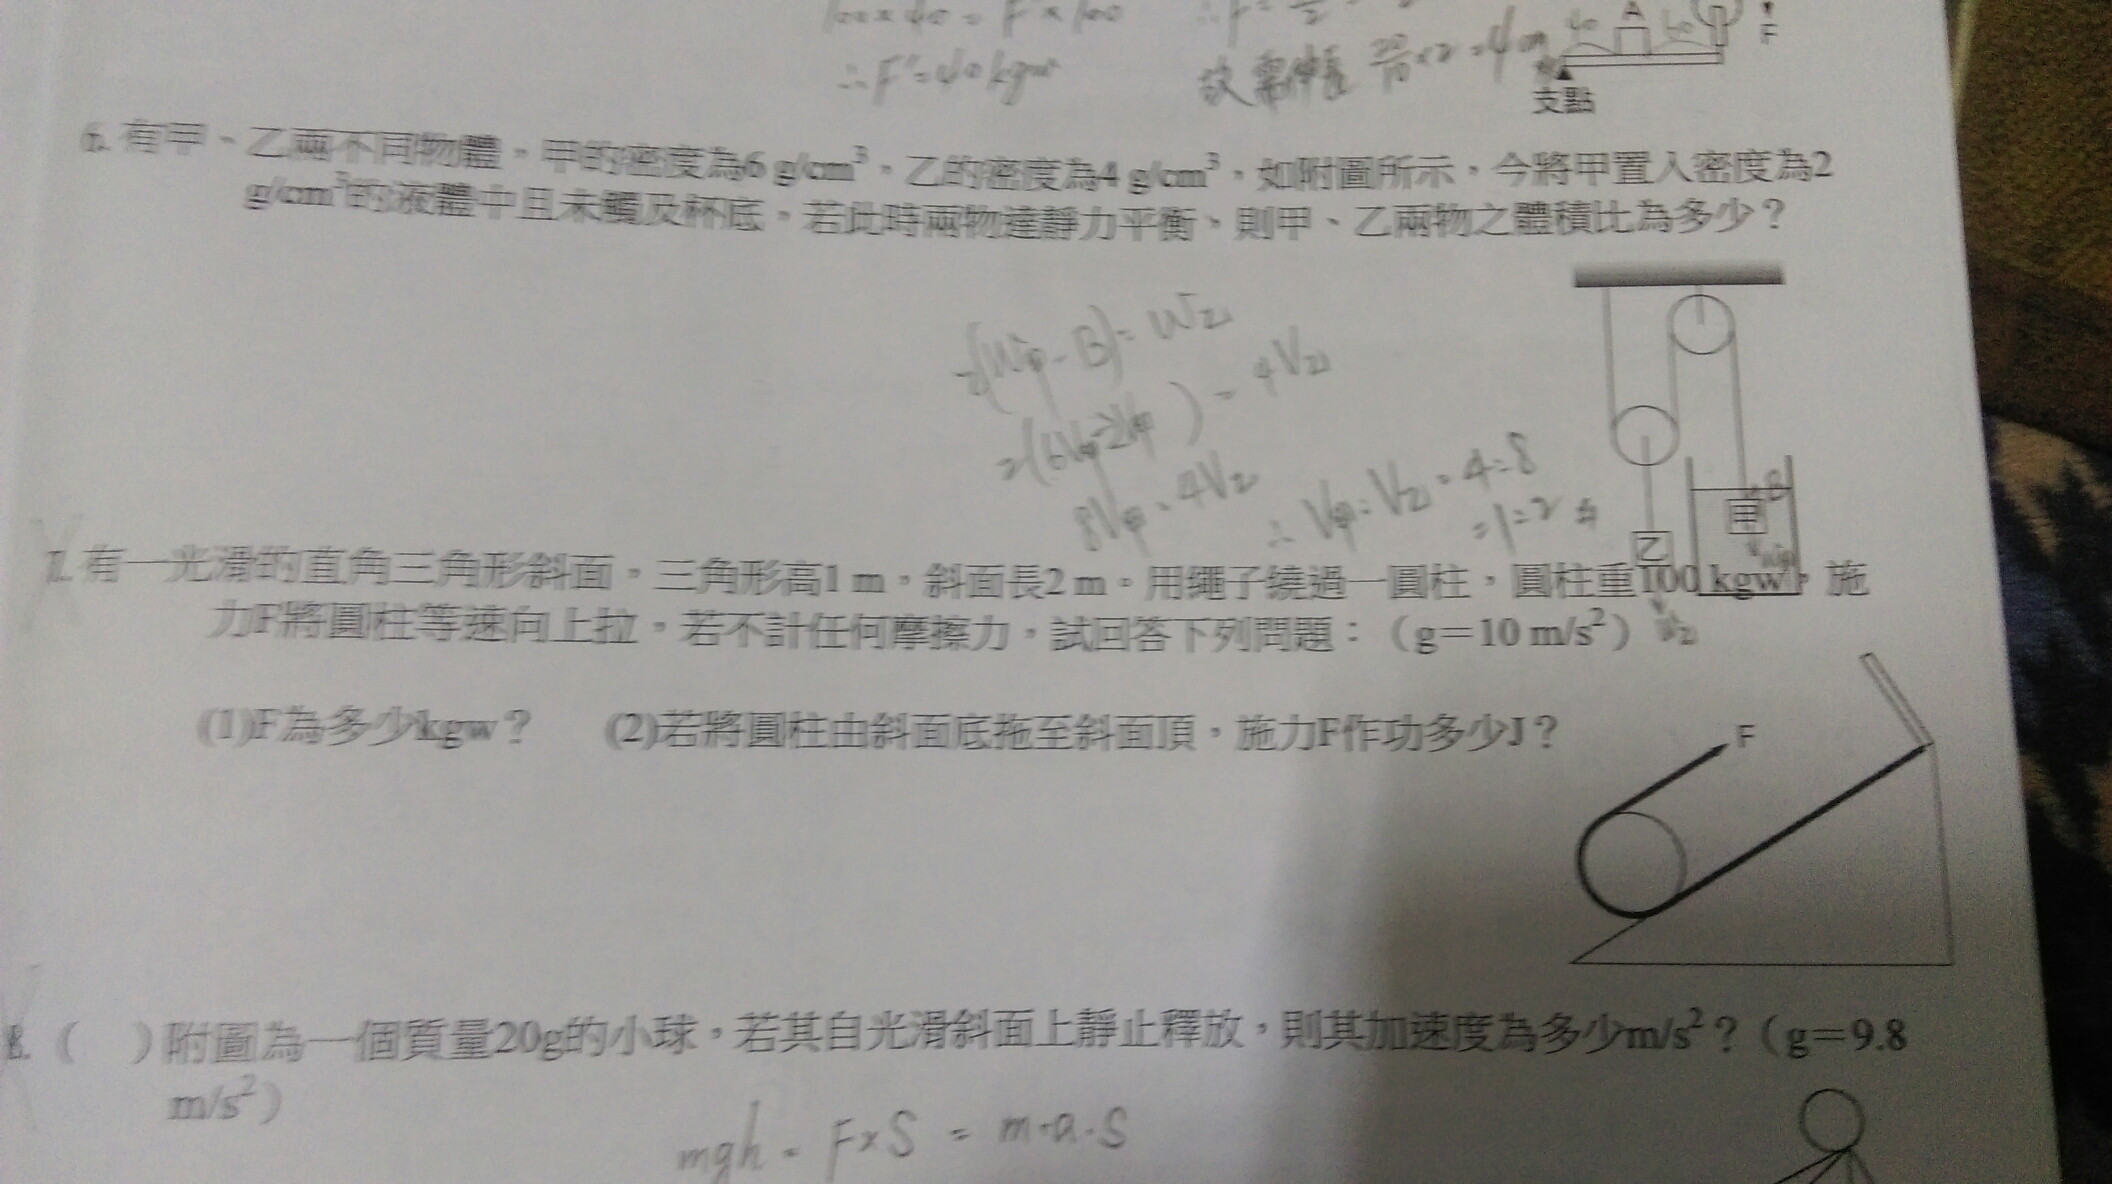 100×40=F×100
∴F"=40kgw
故需伸長 20/10×2=4cm
40
A
60
F
支點
6. 有甲、乙兩不同物體,甲的密度為6 g/cm³,乙的密度為4 g/cm³,如附圖所示,今將甲置入密度為2
g/cm³的液體中且未觸及杯底,若此時兩物達靜力平衡、則甲、乙兩物之體積比為多少?
2(W甲-B)=W乙
2(6V甲-2V甲)=4V乙
8V甲=4V乙
∴V甲:V乙=4:8
=1:2
B
甲
W甲
乙
W乙
7. 有一光滑的直角三角形斜面,三角形高1 m,斜面長2 m。用繩子繞過一圓柱,圓柱重100 kgw,施
力F將圓柱等速向上拉,若不計任何摩擦力,試回答下列問題:(g=10 m/s²)
(1)F為多少kgw? (2)若將圓柱由斜面底拖至斜面頂,施力F作功多少J?
F
8. ( )附圖為一個質量20g的小球,若其自光滑斜面上靜止釋放,則其加速度為多少m/s²?(g=9.8
m/s²)
mgh=F×S=m·a·S